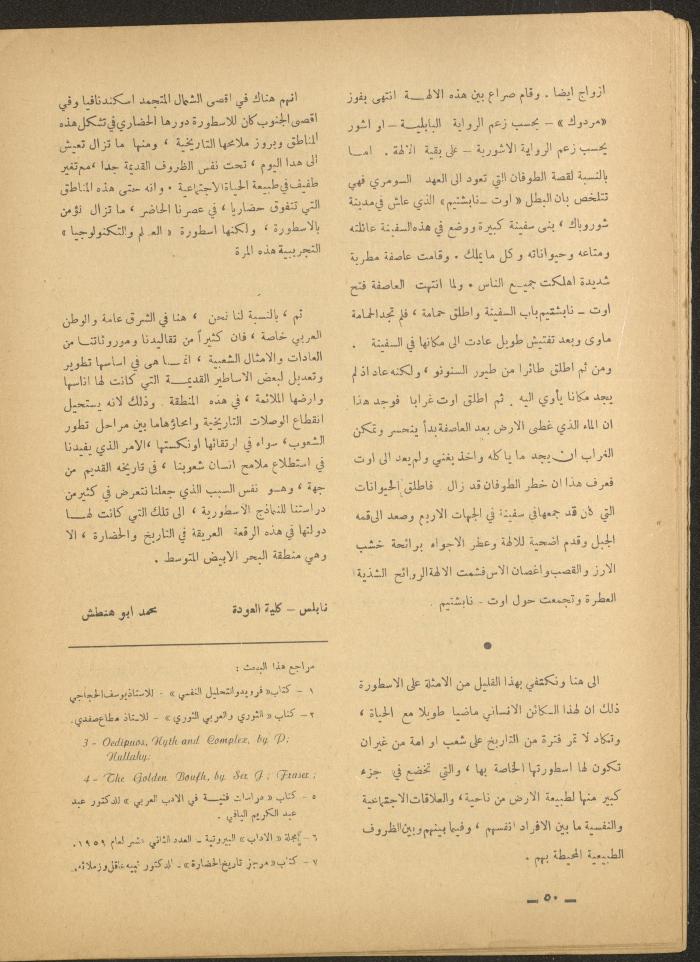 ازواج ايضا . وقام صراع بين هذه الالهـــة انتهى بفوز
«مردوك» – بحسب زعم الرواية البابلية – او اشور
بحسب زعم الرواية الاشورية – على بقية الالهة . امـا
بالنسبة لقصة الطوفان التي تعود الى العهد السومري فهي
تتلخص بان البطل « اوت – نابشتيم» الذي عاش في مدينة
شوروباك ، بنى سفينة كبيرة ووضع في هذه السفينة عائلته
ومتاعه وحيواناته وكل ما يملك . وقامت عاصفة مطرية
شديدة اهلكت جميـع الناس . ولما انتهت العاصفة فتح
اوت – نابشتيم باب السفينة واطلق حمامة ، فلم تجد الحمامة
ماوى وبعد تفتيش طويل عادت الى مكانها في السفينة .
ومن ثم اطلق طائرا من طيور السنونو ، ولكنه عاد اذ لم
يجد مكانا يأوي اليه . ثم اطلق اوت غرابا فوجد هذا
ان الماء الذي غطى الارض بعد العاصفة بدأ ينحسر وتمكن
الغراب ان يجد ما ياكله واخذ يغني ولم يعد الى اوت
فعرف هذا ان خطر الطوفان قد زال فاطلق الحيوانات
التي كان قد جمعها في سفينة في الجهات الاربع وصعد الى قمة
الجبل وقدم اضحية للالهة وعطر الاجواء برائحة خشب
الارز والقصب واغصان الاس فشمت الالهة الروائح الشذية
العطرة وتجمعت حول اوت - نابشتيم .
●
الى هنا ونكتفي بهذا القليل من الامثلة على الاسطورة
ذلك ان لهذا الكائن الانساني ماضيا طويلا مع الحياة ،
وتكاد لا تمر فترة من التاريخ على شعب او امة من غير ان
تكون لها اسطورتها الخاصة بها ، والتي تخضع في جزء
كبير منها لطبيعة الارض من ناحية ، والعلاقات الاجتماعية
والنفسية ما بين الافراد انفسهم ، وفيما بينهم وبين الظروف
الطبيعية المحيطة بهم .
انهم هناك في اقصى الشمال المتجمد اسكندنافيا وفي
اقصى الجنوب كان للاسطورة دورها الحضاري في تشكل هذه
المناطق وبروز ملامحها التاريخية ، ومنها ما تزال تعيش
الى هذا اليوم ، تحت نفس الظروف القديمة جدا ، مع تغير
طفيف في طبيعة الحياة الاجتماعية . وانه حتى هذه المناطق
التي تتفوق حضاريا ، في عصرنا الحاضر ، ما تزال تؤمن
بالاسطورة ، ولكنها اسطورة « العـلم والتكنولوجيا »
التجريبية هذه المرة
ثم ، بالنسبة لنا نحن ، هنا في الشرق عامة والوطن
العربي خاصة ، فان كثيراً من تقاليدنا وموروثاتنـا من
العادات والامثال الشعبية ، انمـا هى في اساسها تطوير
وتعديل لبعض الاساطير القديمـة التي كانت لها اناسها
وارضها الملائمة ، في هذه المنطقة . وذلك لانه يستحيل
انقطاع الوصلات التاريخية وامحاؤها ما بين مراحل تطور
الشعوب، سواء في ارتقائها او نكستها ، الامر الذي يفيدنا
في استطلاع ملامح انسان شعوبنا ، في تاريخه القديم من
جهة ، وهـو نفس السبب الذي جعلنا نتعرض في كثير من
دراستنا للنماذج الاسطورية ، الى تلك التي كانت لهـا
دولتها في هذه الرقعة العريقة في التاريخ والحضارة ، الا
وهي منطقة البحر الابيض المتوسط .
نابلس – كلية العودة محمد ابو هنطش
مراجع هذا البحث :
١ – كتاب «فرويد والتحليل النفسي» - للاستاذ يوسف الحجاجي
٢ – كتاب «الثوري والعربي الثوري» – للاستاذ مطاع صفدي.
3 - Oedipuos, Myth and Complex, by P;
Mullahy;
4 - The Golden Boufh, by Ser J; Fraser;
٥ - كتاب « دراسات فنيـة في الادب العربي » للدكتور عبد
عبد الكريم اليافي .
٦ - مجلة «الاداب» البيروتية – العدد الثاني عشر لعام ١٩٥٩.
٧ – كتاب «موجز تاريخ الحضارة» - للدكتور نبيه عاقل وزملائه.
– ٥٠ –